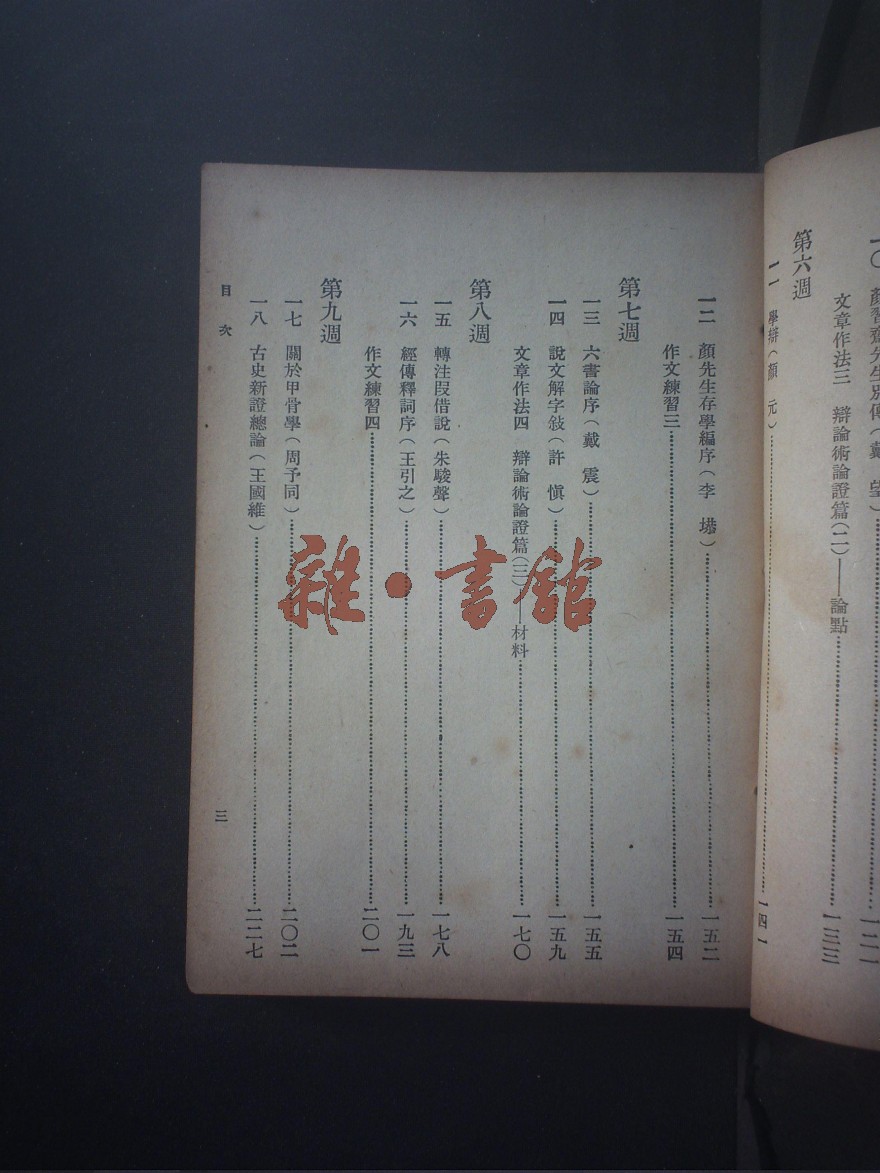 一〇　顏習齋先生別傳（戴　望）……一二一
文章作法三　辯論術論證篇（二）——論點……一三三
第六週
一一　學辯（顏　元）……一四一
一二　顏先生存學編序（李　塨）……一五二
作文練習三……一五四
第七週
一三　六書論序（戴　震）……一五五
一四　說文解字敍（許　愼）……一五九
文章作法四　辯論術論證篇（三）——材料……一七〇
第八週
一五　轉注叚借說（朱駿聲）……一七八
一六　經傳釋詞序（王引之）……一九三
作文練習四……二〇一
第九週
一七　關於甲骨學（周予同）……二〇二
一八　古史新證總論（王國維）……二二七
目次
三
雜·書館